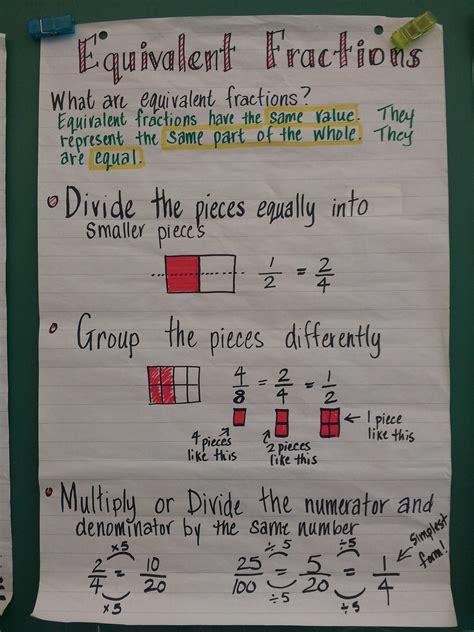 Equivalent Fractions
What are equivalent fractions?
Equivalent fractions have the same value. They
represent the same part of the whole. They
are equal.
Divide the pieces equally into
smaller pieces
1/2 = 2/4
Group the pieces differently
4/8 = 2/4 = 1/2
4 pieces
like this
2 pieces
like this
1 piece
like this
Multiply or Divide the numerator and
denominator by the same number
x5 ÷5 ÷5
2/4 = 10/20 25/100 = 5/20 = 1/4
x5 ÷5 ÷5
Simplest
form!